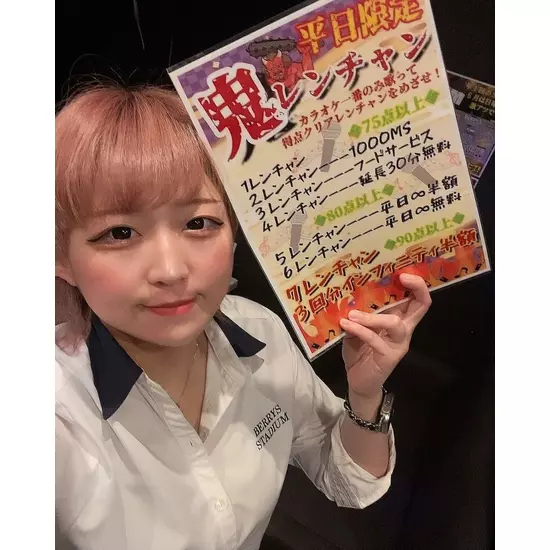 平日限定
鬼レンチャン
カラオケ一番のみ歌って
得点クリアレンチャンをめざせ!
◆75点以上◆
1レンチャン
2レンチャン――1000MS
3レンチャン――フードサービス
4レンチャン――延長30分無料
◆80点以上◆
5レンチャン――平日∞半額
6レンチャン――平日∞無料
◆90点以上◆
7レンチャン
3回分インフィニティ半額
BERRYS
STADIUM